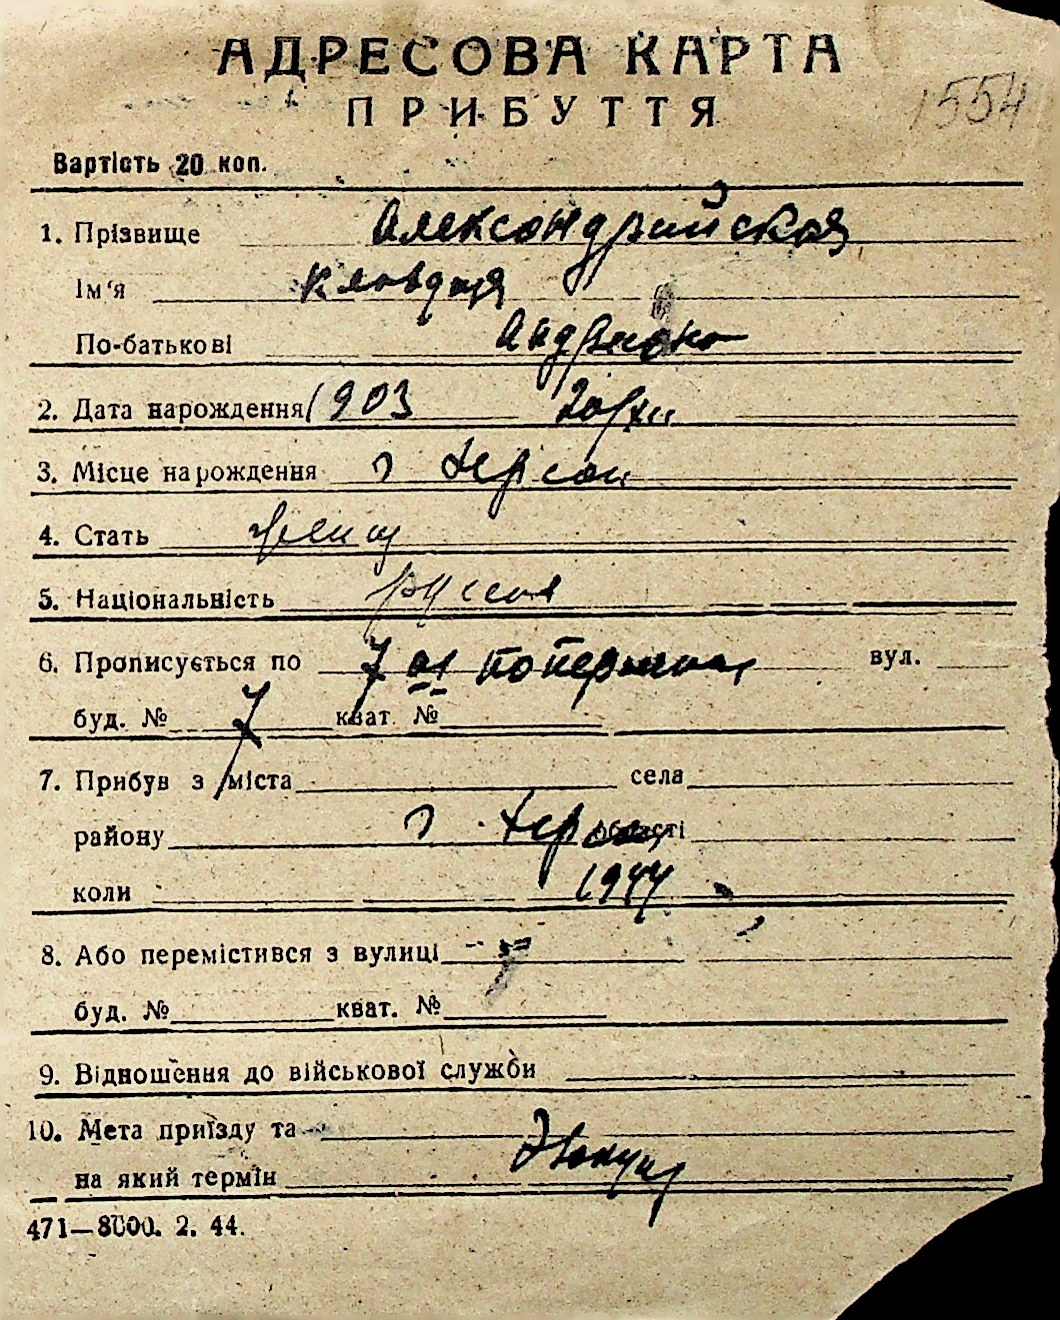 АДРЕСОВА КАРТА
ПРИБУТТЯ
1554
Вартість 20 коп.
1. Прізвище Александрийская
Ім'я Клавдия
По-батькові
2. Дата народження 1903
3. Місце народження г Херсон
4. Стать женщ
5. Національність русская
6. Прописується по 7 ая поперечная вул.
буд. № 7 кват №
7. Прибув з міста села
району г Херсон області
коли 1944
8. Або перемістився з вулиці
буд. № кват. №
9. Відношення до військової служби
10. Мета приїзду та
на який термін
471—8000. 2. 44.